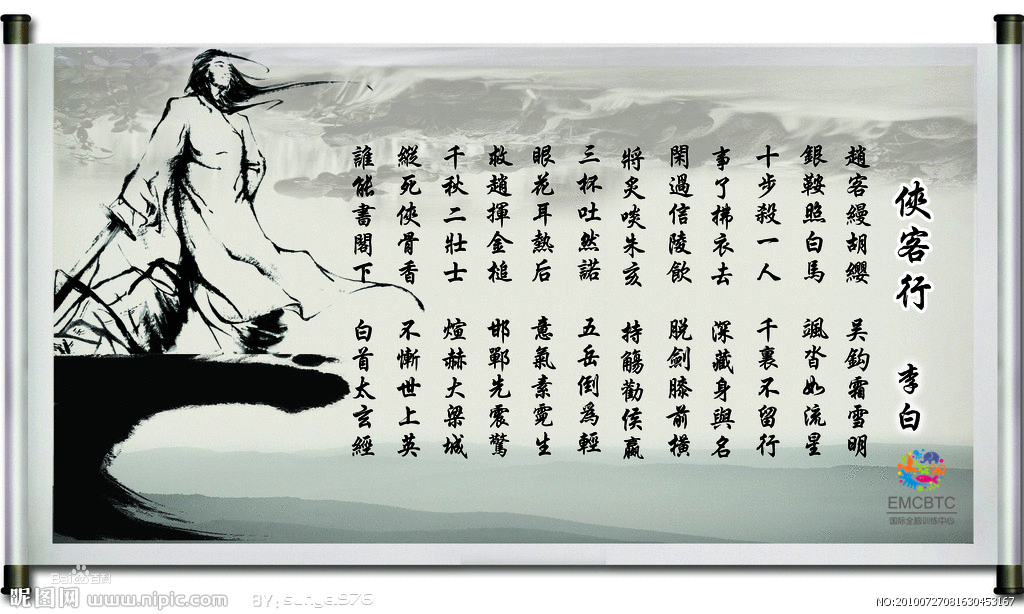 俠客行 李白
趙客縵胡纓 吳鈎霜雪明
銀鞍照白馬 颯沓如流星
十步殺一人 千裏不留行
事了拂衣去 深藏身與名
閑過信陵飲 脫劍膝前橫
將炙啖朱亥 持觴勸侯嬴
三杯吐然諾 五岳倒爲輕
眼花耳熱后 意氣素霓生
救趙揮金槌 邯鄲先震驚
千秋二壯士 煊赫大梁城
縱死俠骨香 不慚世上英
誰能書閣下 白首太玄經
EMCBTC
国际全脑训练中心
Bai百科
昵图网 www.nipic.com BY: sunga976
NO:20100727081630453167